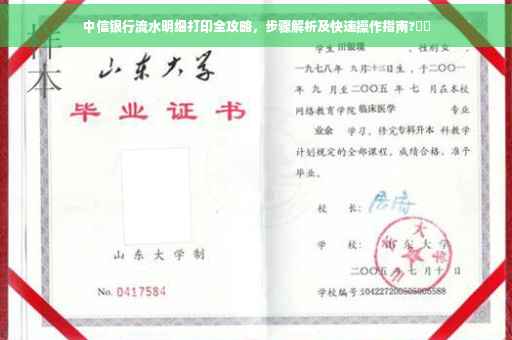 中信银行流水明细打印全攻略，步骤解析及快速操作指南?
样本
山东大学
毕业证书
山东大学制
No. 0417584
学生 田银瑞 ，性别女，
一九七八年 九月十三日生，于二〇〇一
年 九 月至二〇〇五 年 七 月在本校
网络教育学院 临床医学 专业
业余 学习，修完专科升本 科教学
计划规定的全部课程，成绩合格，准予
毕业。
校 长：
学 校： 山东大学
二〇〇五 年 七 月 十 日
学校编号:104227200505005588